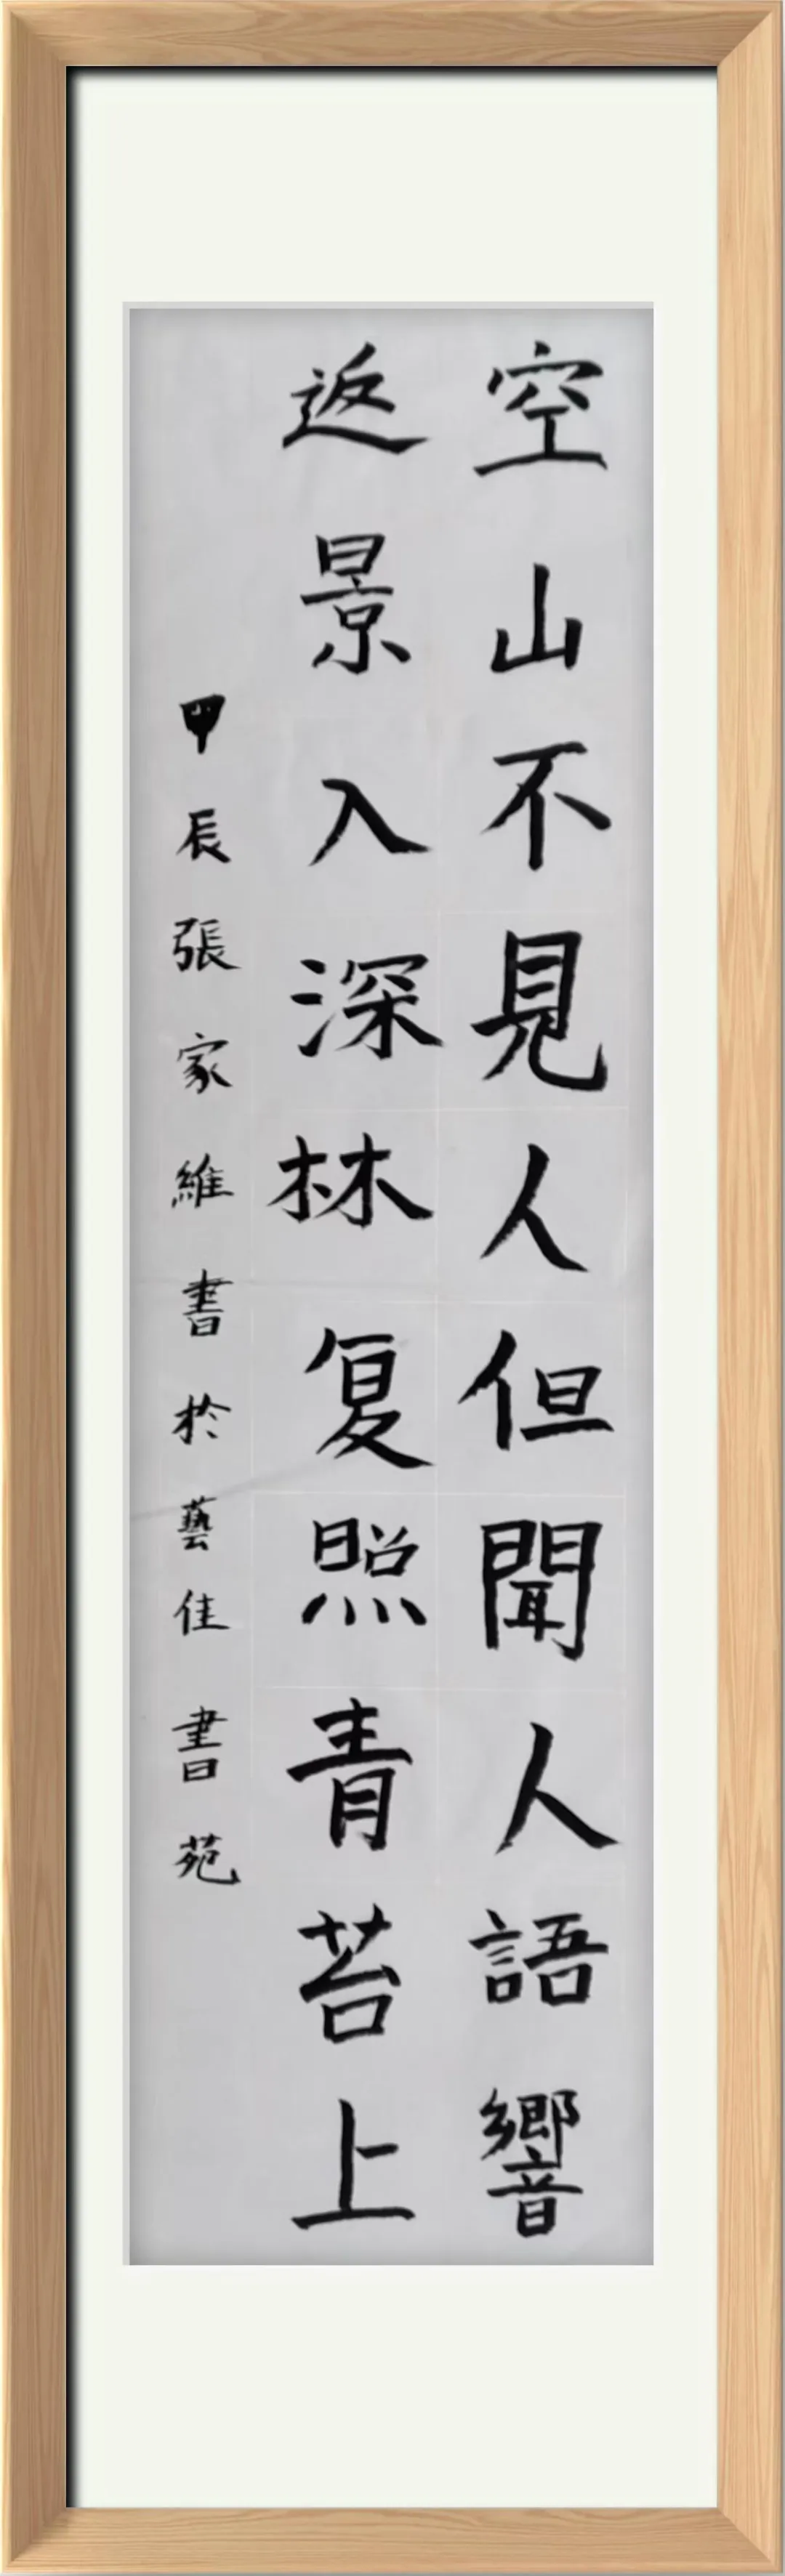 空山不見人但聞人語響
返景入深林复照青苔上
甲辰張家維書於藝佳書苑